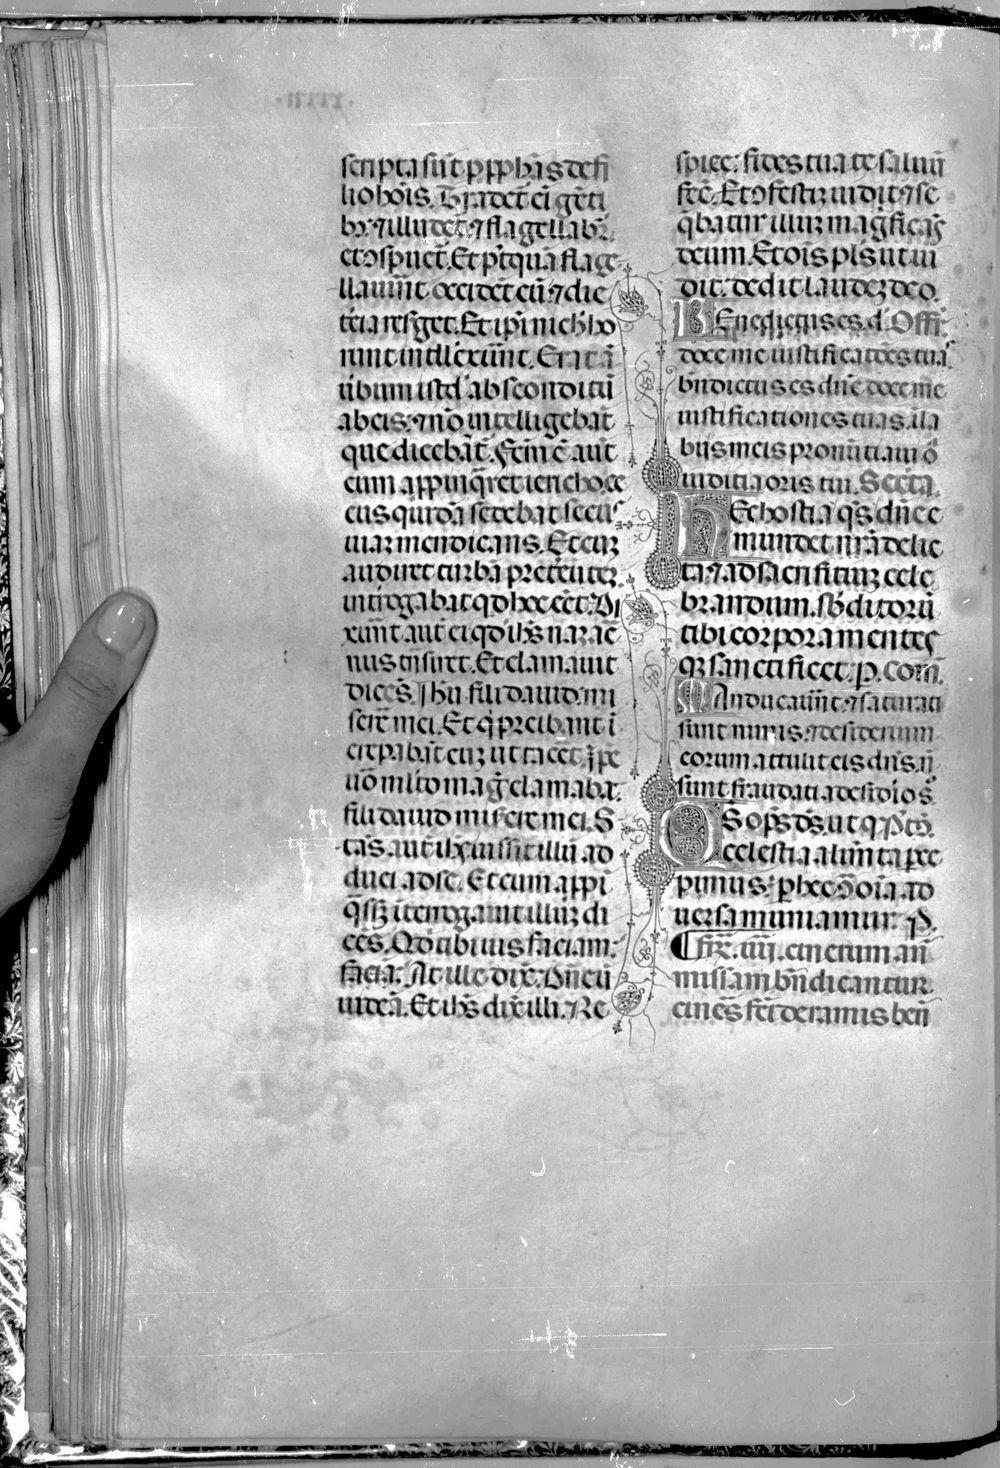 scripta sūt p pphās de fi
lio hoīs. Tradet̄ ēi gēti
b₉. ⁊ illudet̄. ⁊ flagellabr̄.
et ɔspuet̄. Et p̄tquā flage
llauīnt occidēt eū. ⁊ die
tēia resḡet. Et ip̄i nichil ho
rum intell̄exīunt. Erat ā
ūbum istđ absconditū
ab eis. ⁊ nō intelligebāt
que dicebāt. F̄cm̄ ē aūt
cum appinq̄ret iericho. ce
cus quidā sedebat secus
uiaꝫ mendicans. Et cuꝫ
audiret turbā pretēuteꝫ
int̄rogabat qđ hoc eēt. Di
xunt̄ aūt ei qđ ih̄s naꝫaē
nus tn̄siret. Et clamauit
dicēs. Jh̄u fili dauid mi
serē mei. Et q̄ preibant ī
crepabāt euꝫ ut tacēt. Ip̄e
uō ml̄to mag̃ clamabat.
fili dauid miserere mei. S
tās. aut̄ ih̄s iussit illū ad
duci ad se. Et cum appi
q̄sꝫ īterrogauit illuꝫ di
ces. Qđ tibi uis faciam:
faciā: At ille dix̄. Dn̄e ū
uideā. Et ih̄s dix̄ illi. Re
spice: fides tua te saluū
fec̄. Et ɔfestiꝫ uidit ⁊ se
q̄batur illuꝫ magficās̄
deum. Et oīs pl̄s ut ui
dit: dedit laudeꝫ deo.
Benedictus es. đ. Offr̄
doce me iustificatōes tuas
bn̄dictus es dn̄e doce me
iustificationes tuas. ī la
bijs meis pronūtiaui ō
iuditia oris tui. Secrēta.
Hec hostia q̄s dn̄e e
mundet nr̄a delic
ta. ⁊ ad sacrifitiuꝫ cele
brandum. sb̄ditorū
tibi corpora mentes
qꝫ sanctificet. p. Com̄.
Manducauīnt. ⁊ saturati
sunt nimis. ⁊ desiderium
eorum attulit eis dn̄s. nō
sunt fraudati a desidio s̄.
Qs op̄s đs. ut q̄ Pꝰcō.
celestia alimta p̄ce
pimus. p hec cō oīa ad
uersa muniamur. P.
Fr̄. iiij. cinerum an̄
missam bn̄dicantur.
cinēs fc̄i de ramis ben̄